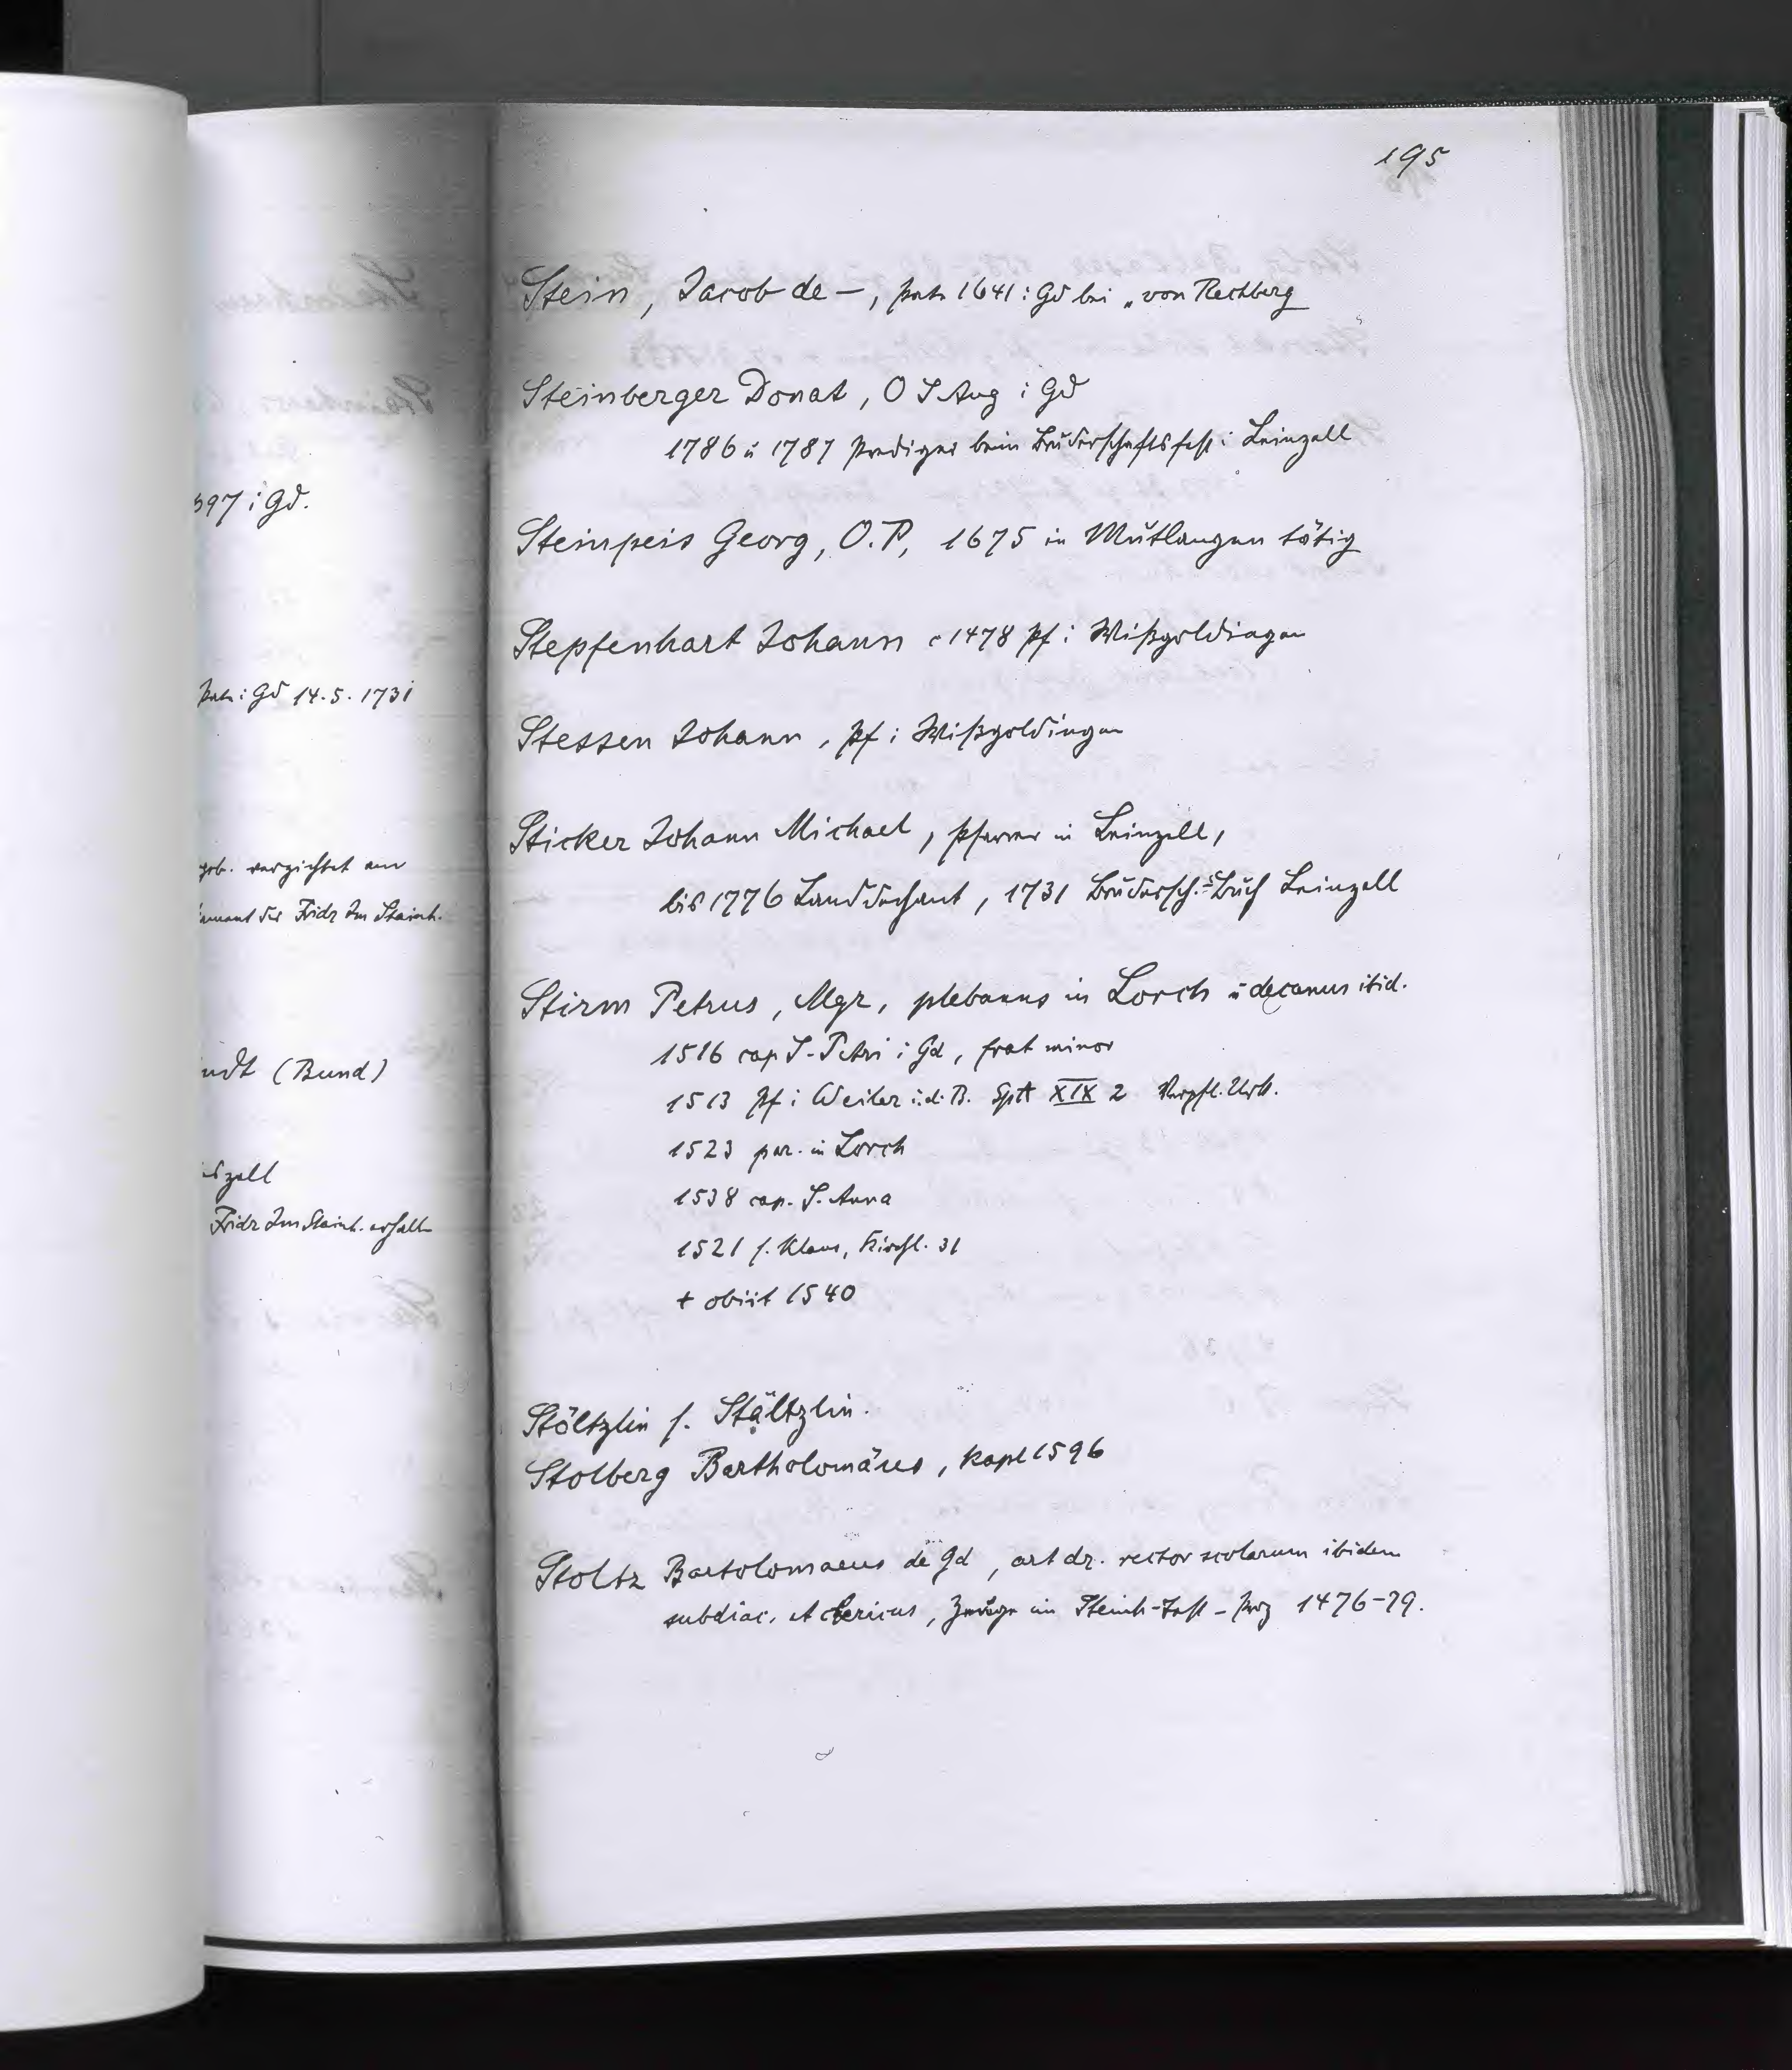 195
597 i Gd.
Patr i Gd 14.5.1731
geb. verzichtet am
der Fidz Im Steinh.
ndt (Bund)
szell
Fridz Im Steinh. erhalt
Stein, Jacob de —, Patr 1641 i Gd bei „von Rechberg
Steinberger Donat, O S Aug i Gd
1786 u 1787 Prediger beim Bruderschaftsfest i Leinzell
Steinpeis Georg, O.P, 1675 in Mutlangen tätig
Stepfenhart Johann c 1478 Pf i Wißgoldingen
Stessen Johann, Pf i Wißgoldingen
Sticker Johann Michael, Pfarrer in Leinzell,
bis 1776 Landdechant, 1731 Brudersch.s=Buch Leinzell
Stirm Petrus, Mgr, plebanus in Lorch u decanus ibid.
1516 cap S-Petri i Gd, frat minor
1513 Pf i Weiler i.d.B. Spit XIX 2 Verpfl. Urk.
1523 par. in Lorch
1538 cap. S. Anna
1521 s. Klaus, Kirchl. 31
+ obiit 1540
Stöltzlin s. Stältzlin.
Stolberg Bartholomäus, Kapl 1596
Stoltz Bartolomaeus de Gd, art dr. rector scolarum ibidem
subdiac. et clericus, Zeuge im Steinh-Tast-Proz 1476-79.